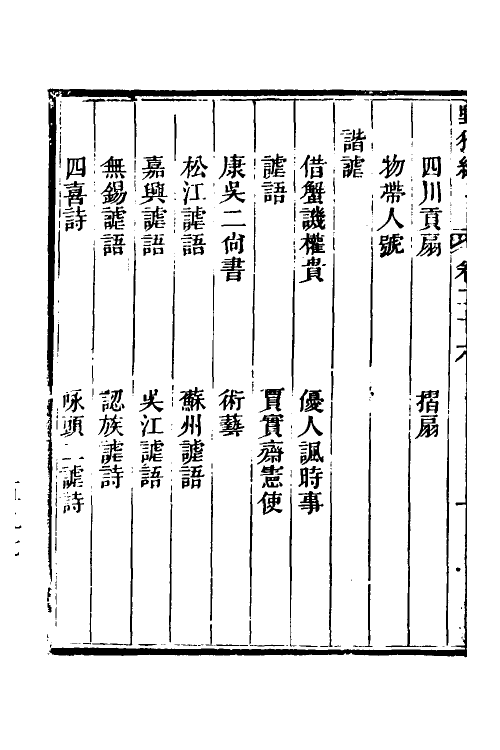 野獲編 卷二十六
四川貢扇 摺扇
物帶人號
諧謔
借蟹譏權貴 優人諷時事
謔語 賈實齋憲使
康吳二尙書 術藝
松江謔語 蘇州謔語
嘉興謔語 吳江謔語
無錫謔語 認族謔詩
四喜詩 咏頭二謔詩